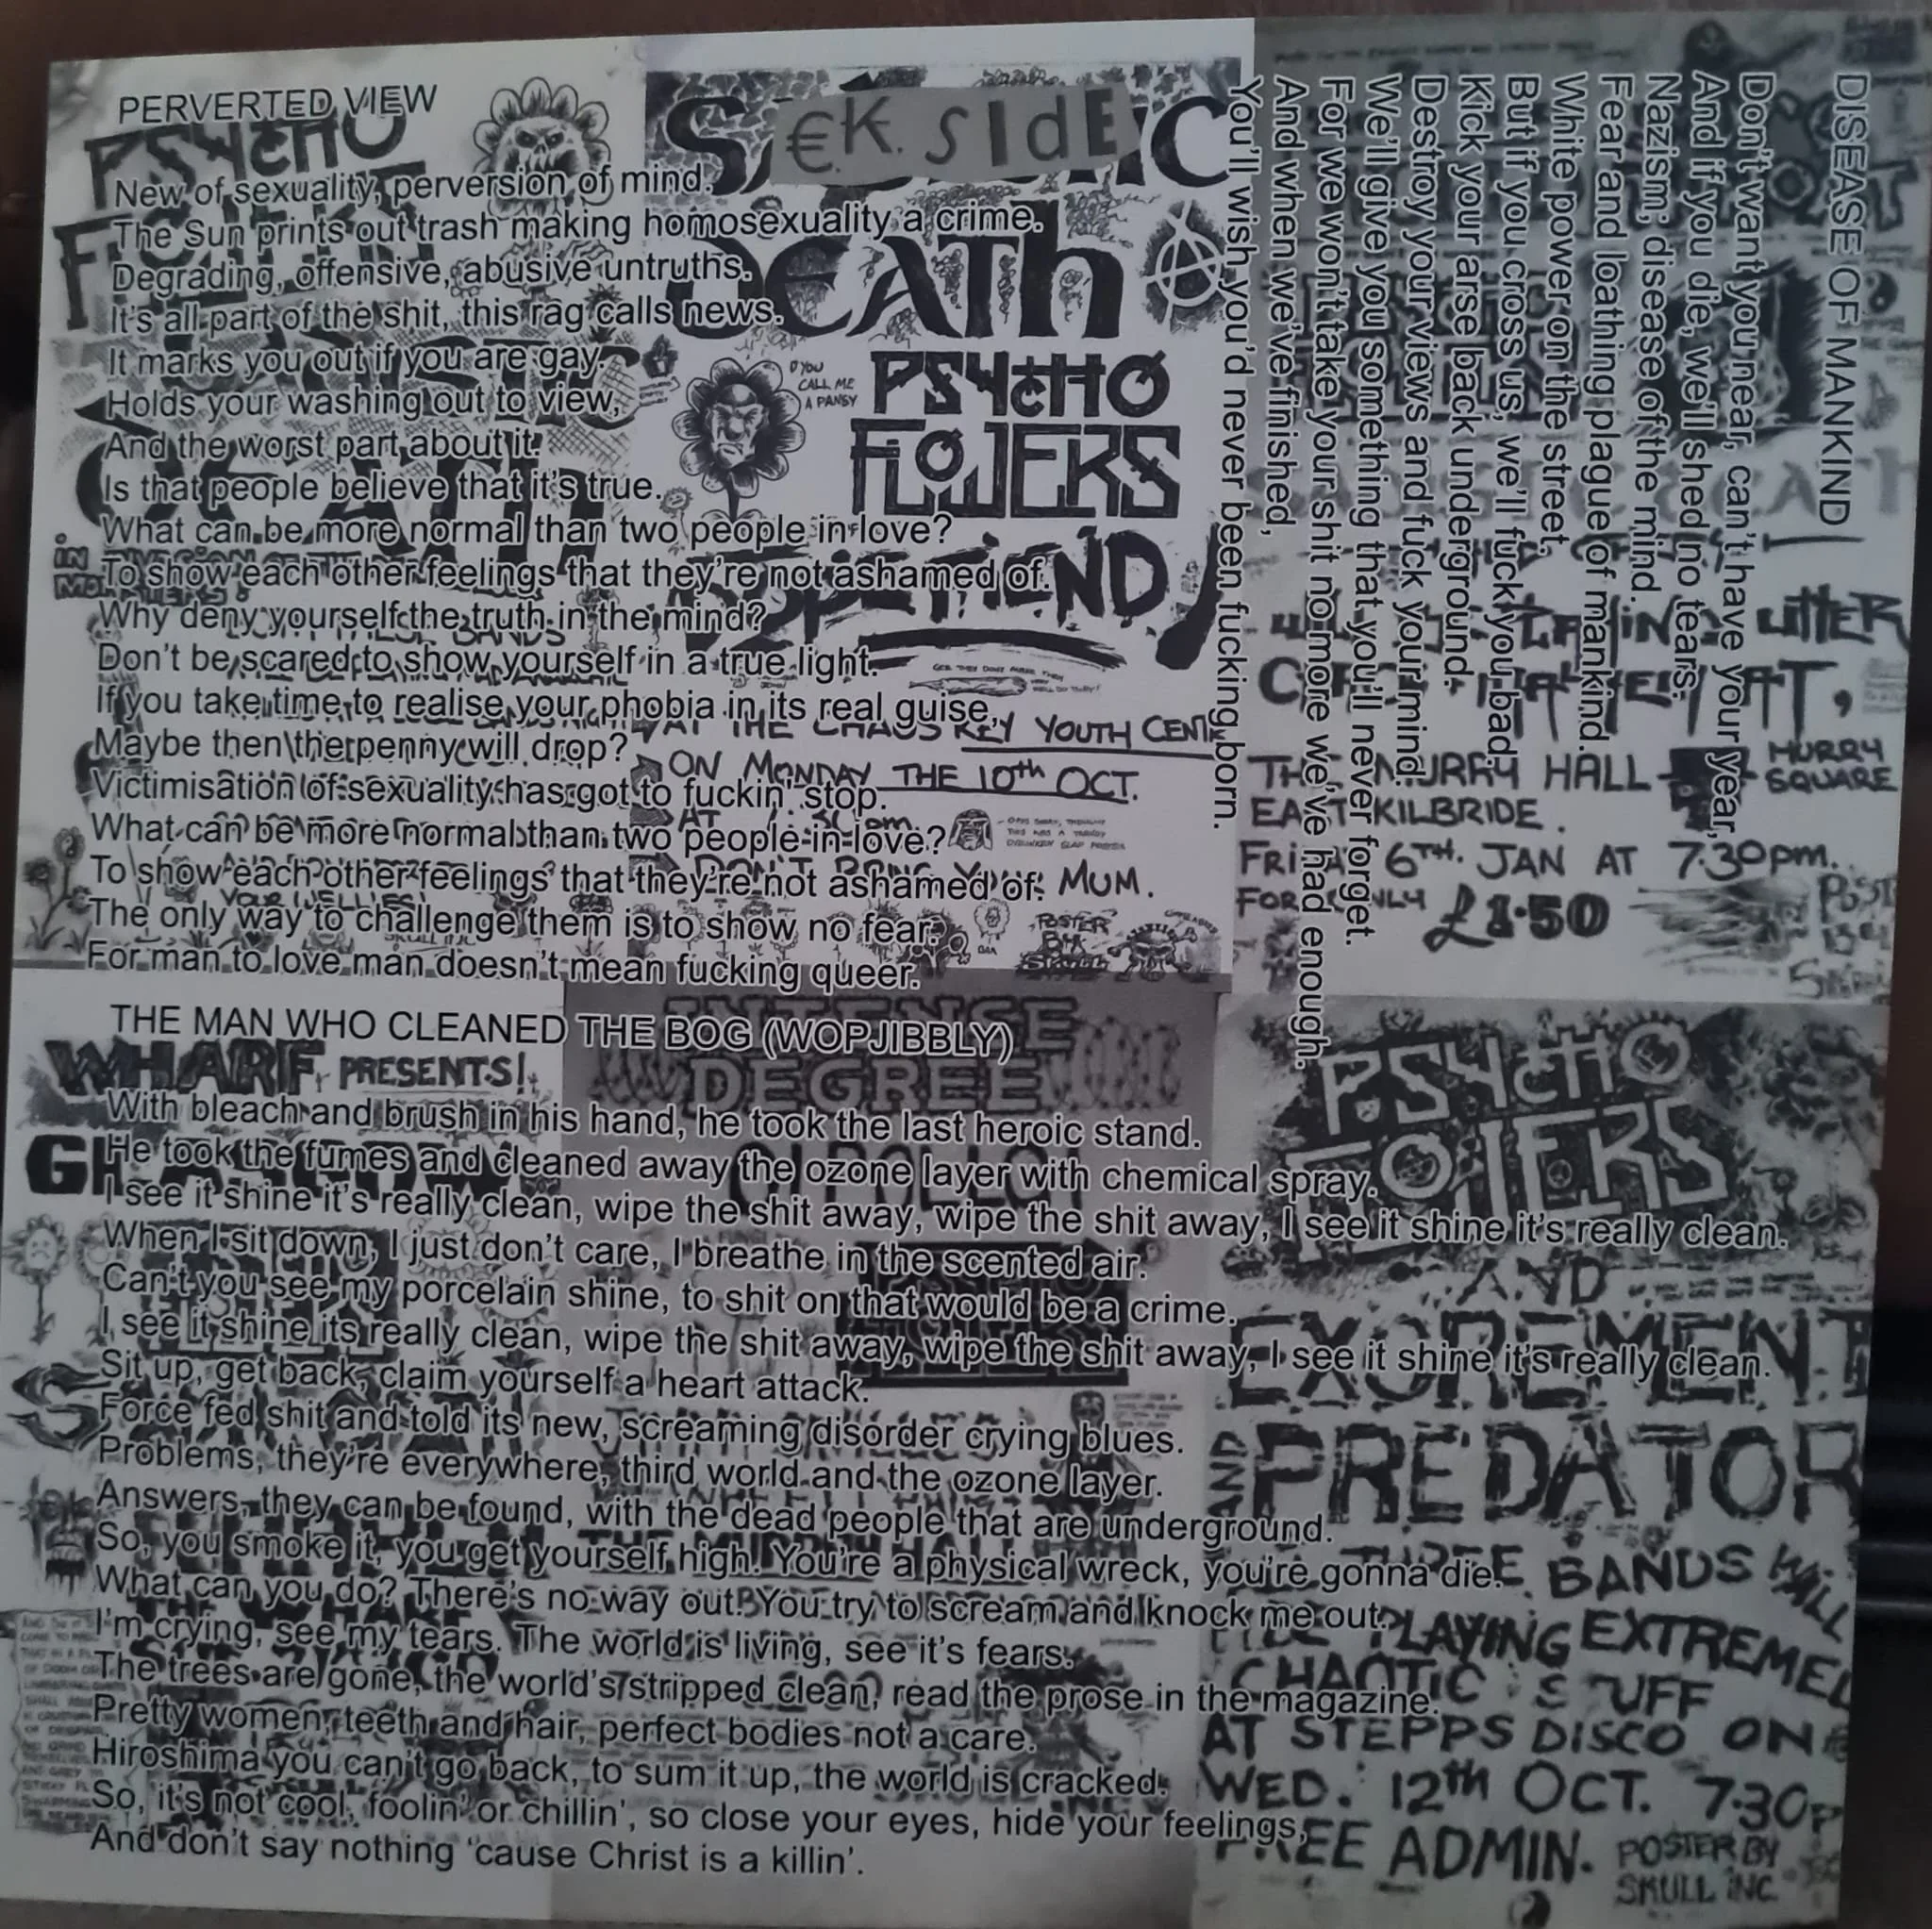 PERVERTED VIEW
New of sexuality, perversion of mind.
The Sun prints out trash making homosexuality a crime.
Degrading, offensive, abusive untruths.
It's all part of the shit, this rag calls news.
It marks you out if you are gay.
Holds your washing out to view,
And the worst part about it.
Is that people believe that it's true.
What can be more normal than two people in love?
To show each other feelings that they're not ashamed of.
Why deny yourself the truth in the mind?
Don't be scared to show yourself in a true light.
If you take time to realise your phobia in its real guise,
Maybe then the penny will drop?
Victimisation of sexuality has got to fuckin' stop.
What can be more normal than two people in love?
To show each other feelings that they're not ashamed of.
The only way to challenge them is to show no fear.
For man to love man doesn't mean fucking queer.
THE MAN WHO CLEANED THE BOG (WOPJIBBLY)
With bleach and brush in his hand, he took the last heroic stand.
He took the fumes and cleaned away the ozone layer with chemical spray.
I see it shine it's really clean, wipe the shit away, wipe the shit away, I see it shine it's really clean.
When I sit down, I just don't care, I breathe in the scented air.
Can't you see my porcelain shine, to shit on that would be a crime.
I see it shine its really clean, wipe the shit away, wipe the shit away, I see it shine it's really clean.
Sit up, get back, claim yourself a heart attack.
Force fed shit and told its new, screaming disorder crying blues.
Problems, they're everywhere, third world and the ozone layer.
Answers, they can be found, with the dead people that are underground.
So, you smoke it, you get yourself high! You're a physical wreck, you're gonna die.
What can you do? There's no way out! You try to scream and knock me out.
I'm crying, see my tears. The world is living, see it's fears.
The trees are gone, the world's stripped clean, read the prose in the magazine.
Pretty women, teeth and hair, perfect bodies not a care.
Hiroshima you can't go back, to sum it up, the world is cracked.
So, it's not cool, foolin' or chillin', so close your eyes, hide your feelings,
And don't say nothing 'cause Christ is a killin'.
DISEASE OF MANKIND
Don't want you near, can't have your year,
And if you die, we'll shed no tears.
Nazism; disease of the mind.
Fear and loathing plague of mankind.
White power on the street,
But if you cross us, we'll fuck you bad.
Kick your arse back underground.
Destroy your views and fuck your mind.
We'll give you something that you'll never forget.
For we won't take your shit no more we've had enough.
And when we've finished,
You'll wish you'd never been fucking born.
€.K. SIdE
DEATH
PSYCHO
FLOWERS
D'YOU
CALL ME
A PANSY
AT THE CHAOS KEY YOUTH CENT
ON MONDAY THE 10th OCT.
MUM.
POSTER
BY
SKULL
PSYCHO
WHARF PRESENTS!
INTENSE
DEGREE
UTTER
MURRAY HALL
MURRY
SQUARE
EAST KILBRIDE.
FRI 6TH. JAN AT 7.30pm.
FOR ONLY £1.50
PSYCHO
FLOWERS
AND
EXCREMENT
AND PREDATOR
THREE BANDS WILL
PLAYING EXTREMEL
CHAOTIC STUFF
AT STEPPS DISCO ON
WED. 12th OCT. 7.30p
FREE ADMIN.
POSTER BY
SKULL INC.